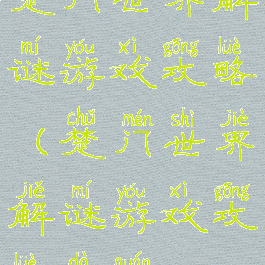 楚门世界解
mí yóu xì gōng lüè
谜游戏攻略
chǔ mén shì jiè
(楚门世界
jiě mí yóu xì gōng
解谜游戏攻
lüè dà quán